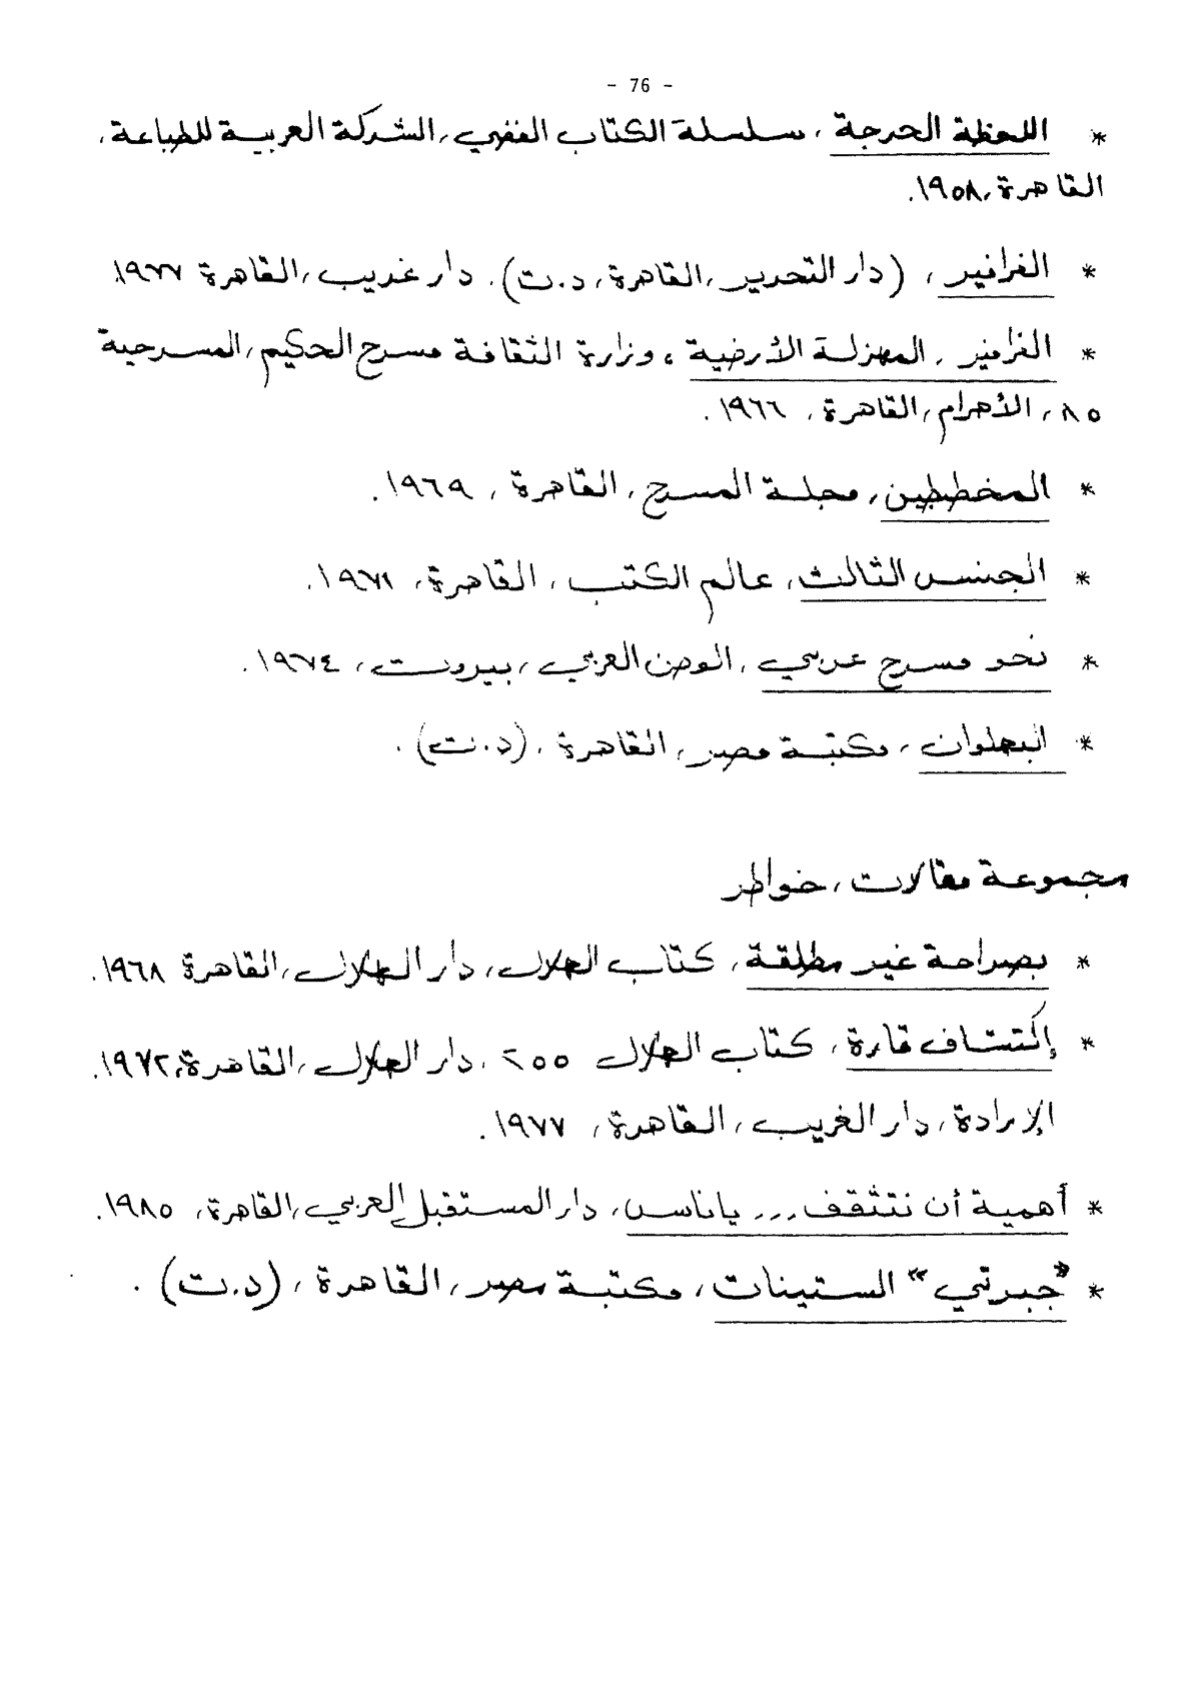 - 76 -
* اللحظة الحرجة، سلسلة الكتاب الفضي، الشركة العربية للطباعة،
القاهرة، ١٩٥٨.
* الفرافير، (دار التحرير، القاهرة، د.ت). دار غريب، القاهرة ١٩٧٧
* الفرافير، المهزلة الأرضية، وزارة الثقافة مسرح الحكيم، المسرحية
٨٥، الأهرام، القاهرة، ١٩٦٦.
* المخططين، مجلة المسرح، القاهرة، ١٩٦٩.
* الجنس الثالث، عالم الكتب، القاهرة، ١٩٧١.
* نحو مسرح عربي، الوطن العربي، بيروت، ١٩٧٤.
* البهلوان، مكتبة مصر، القاهرة، (د.ت).
مجموعة مقالات، خواطر
* بصراحة غير مطلقة، كتاب الهلال، دار الهلال، القاهرة ١٩٦٨.
* إكتشاف قارة، كتاب الهلال ٢٥٥، دار الهلال، القاهرة، ١٩٧٢.
الإرادة، دار الغريب، القاهرة، ١٩٧٧.
* أهمية أن نتثقف... ياناس، دار المستقبل العربي، القاهرة، ١٩٨٥.
* "جبرتي" الستينات، مكتبة مصر، القاهرة، (د.ت).